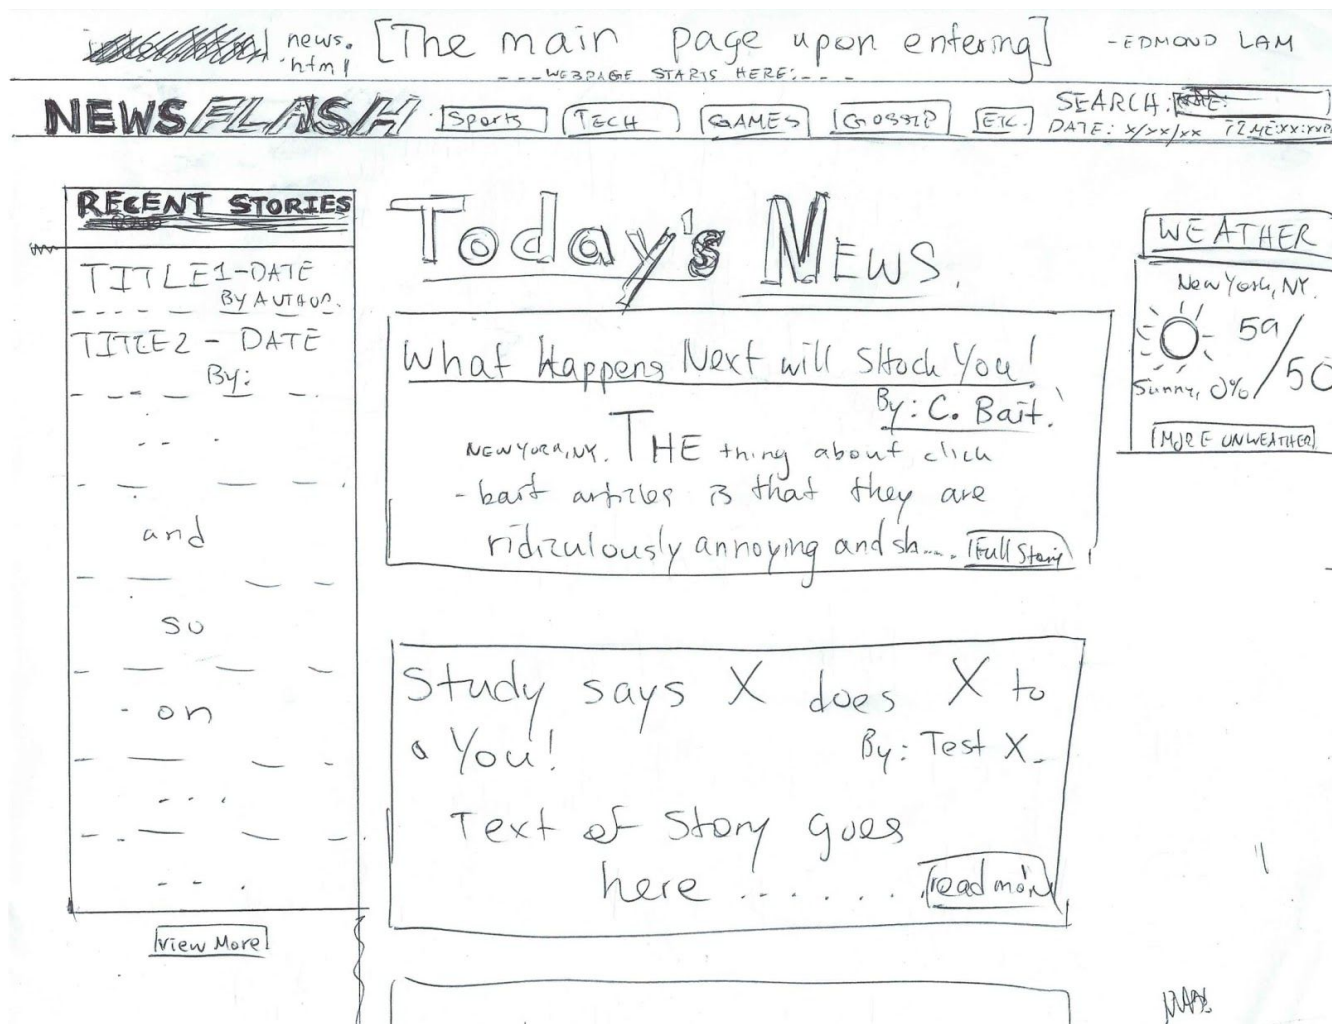 news.html [The main page upon entering] -EDMOND LAM
---WEBPAGE STARTS HERE:---
NEWSFLASH Sports TECH GAMES GOSSIP ETC. SEARCH:
DATE: x/xx/xx TIME:xx:xx
RECENT STORIES
TITLE1-DATE
BY AUTHOR.
TITLE2 - DATE
By:
and
so
on
View More
Today's News.
What Happens Next will Shock You!
By: C. Bait.
NEW YORK, NY. THE thing about click
-bait articles is that they are
ridiculously annoying and sh.... Full Story
Study says X does X to
You!
By: Test X.
Text of Story goes
here ....... read more
WEATHER
New York, NY.
59/50
Sunny, 0%
MORE UNWEATHER